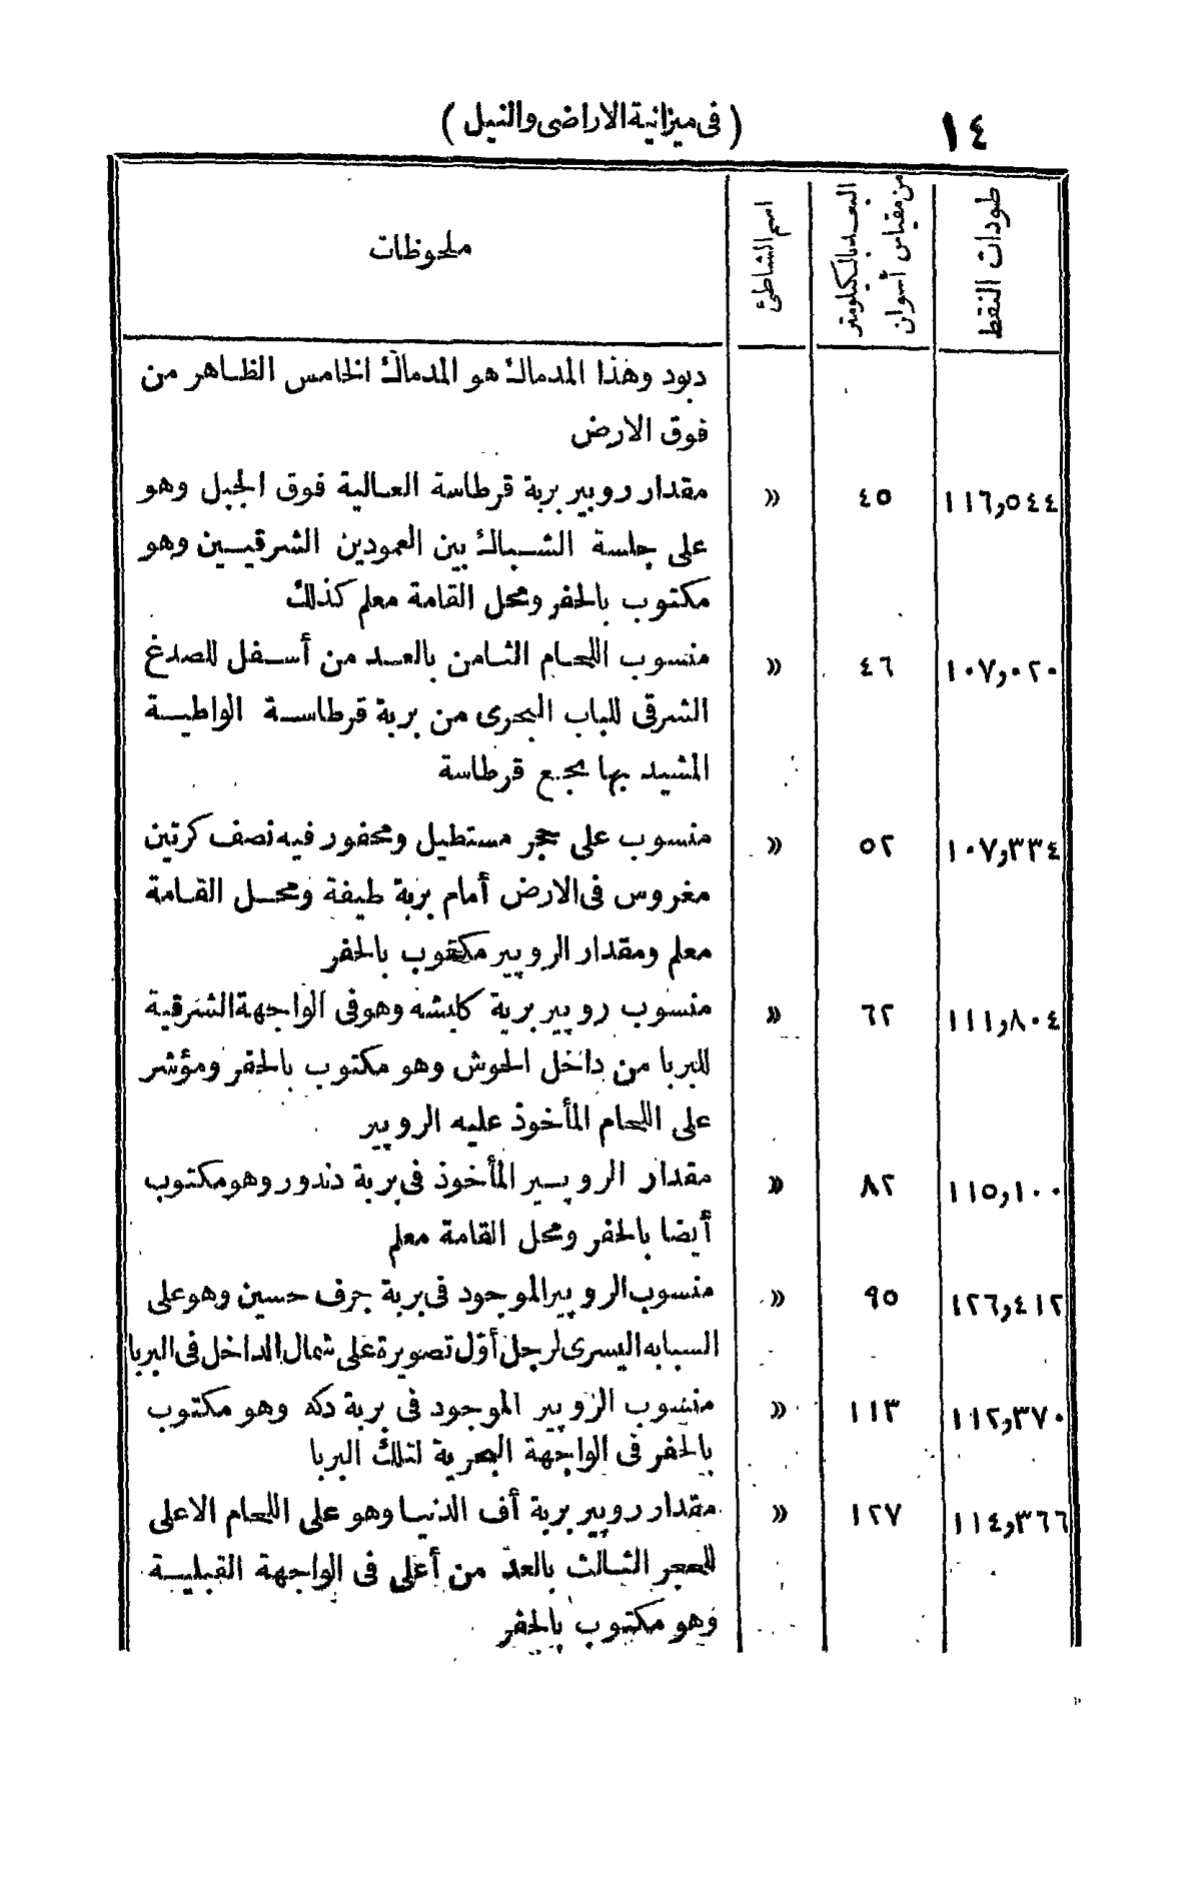 ١٤
(فى ميزانية الاراضى والنيل)
طودات النقط
البعد بالكيلومتر
من مقياس أسوان
اسم الشاطئ
ملحوظات
دبود وهذا المدماك هو المدماك الخامس الظاهر من
فوق الارض
١١٦,٥٤٤ ٤٥ » مقدار روبير بربة قرطاسة العالية فوق الجبل وهو
على جلسة الشباك بين العمودين الشرقيين وهو
مكتوب بالحفر ومحل القامة معلم كذلك
١٠٧,٠٢٠ ٤٦ » منسوب اللحام الثامن بالعد من أسفل للصدغ
الشرقى للباب البحرى من بربة قرطاسة الواطية
المشيد بها بجع قرطاسة
١٠٧,٣٣٤ ٥٢ » منسوب على حجر مستطيل ومحفور فيه نصف كرتين
مغروس فى الارض أمام بربة طيفة ومحل القامة
معلم ومقدار الروبير مكتوب بالحفر
١١١,٨٠٤ ٦٢ » منسوب روبير بربة كلبشه وهو فى الواجهة الشرقية
للبربا من داخل الحوش وهو مكتوب بالحفر ومؤشر
على اللحام المأخوذ عليه الروبير
١١٥,١٠٠ ٨٢ » مقدار الروبير المأخوذ فى بربة دندور وهو مكتوب
أيضا بالحفر ومحل القامة معلم
١٢٦,٤١٢ ٩٥ » منسوب الروبير الموجود فى بربة جرف حسين وهو على
السبابه اليسرى لرجل أوّل تصويرة على شمال الداخل فى البربا
١١٢,٣٧٠ ١١٣ » منسوب الروبير الموجود فى بربة دكه وهو مكتوب
بالحفر فى الواجهة البحرية لتلك البربا
١١٤,٣٦٦ ١٢٧ » مقدار روبير بربة أف الدنيا وهو على اللحام الاعلى
للحجر الثالث بالعد من أعلى فى الواجهة القبلية
وهو مكتوب بالحفر